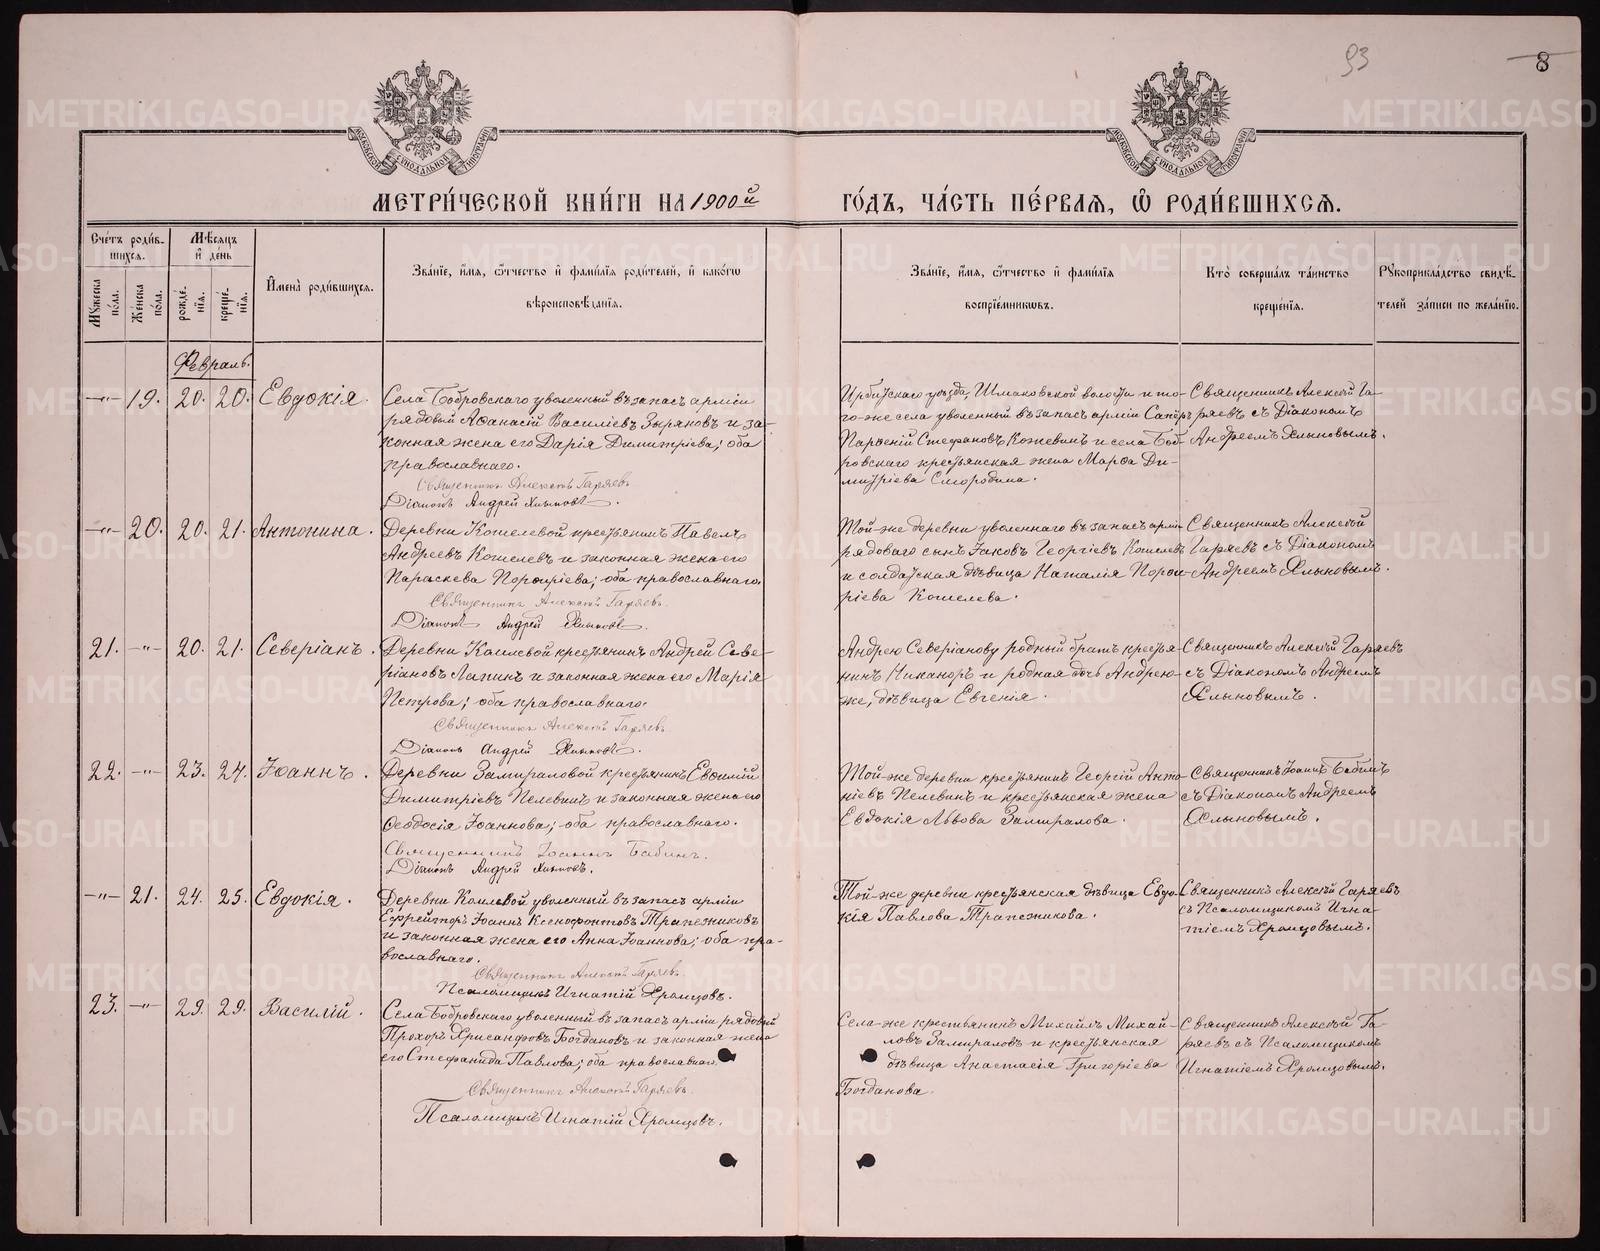 93
8
МОСКОВСКОЙ СѴНОДАЛЬНОЙ ТИПОГРАФІИ
МОСКОВСКОЙ СѴНОДАЛЬНОЙ ТИПОГРАФІИ
МЕТРИ́ЧЕСКОЙ КНИ́ГИ НА 1900й
ГО́ДЪ, ЧА́СТЬ ПЕ́РВАѦ, Ѡ҆ РОДИ́ВШИХСѦ.
Сче́тъ роди́в-
шихсѧ.
Мѣ́сѧцъ
и҆ де́нь
Мꙋ́жеска
по́ла.
Же́нска
по́ла.
рожде́-
нїѧ.
креще́-
нїѧ.
И҆мена̀ роди́вшихсѧ.
Зва́нїе, и҆́мѧ, ѻ҆́тчество и҆ фами́лїѧ роди́телей, и҆ како́гѡ
вѣроисповѣ́данїѧ.
Зва́нїе, и҆́мѧ, ѻ҆́тчество и҆ фами́лїѧ
воспрїе́мникѡвъ.
Кто̀ соверша́лъ та́инство
креще́нїѧ.
Рꙋкоприкла́дство свидѣ́-
телей за́писи по жела́нїю.
Февраль.
-„- 19. 20. 20. Евдокія.
Села Бобровскаго уволенный въ запасъ арміи
рядовый Аѳанасій Василіевъ Зыряновъ и за-
конная жена его Дарія Димитріева; оба
православнаго.
Священникъ Алексей Гаряевъ
Діаконъ Андрей Хлыновъ.
Ирбитскаго уѣзда, Шмаковской волости и то-
го-же села уволенный въ запасъ арміи Сапёръ
Парѳеній Стефановъ Кожевинъ и села Боб-
ровскаго крестьянская жена Марѳа Ди-
митріева Смородина.
Священникъ Алексей Га-
ряевъ съ Діакономъ
Андреемъ Хлыновымъ.
-„- 20. 20. 21. Антонина.
Деревни Кошелевой крестьянинъ Павелъ
Андреевъ Кошелевъ и законная жена его
Параскева Порфиріева; оба православнаго.
Священникъ Алексей Гаряевъ.
Діаконъ Андрей Хлыновъ.
Той-же деревни уволеннаго въ запасъ арміи
рядоваго сынъ Іаковъ Георгіевъ Кошелевъ
и солдатская дѣвица Наталія Порфи-
ріева Кошелева.
Священникъ Алексей
Гаряевъ съ Діакономъ
Андреемъ Хлыновымъ.
21. -„- 20. 21. Северіанъ.
Деревни Кошлевой крестьянинъ Андрей Севе-
ріановъ Лапинъ и законная жена его Марія
Петрова; оба православнаго.
Священникъ Алексей Гаряевъ.
Діаконъ Андрей Хлыновъ.
Андрею Северіанову родный братъ крестья-
нинъ Никаноръ и родная дочь Андрею-
же, дѣвица Евгенія.
Священникъ Алексей Гаряевъ
съ Діакономъ Андреемъ
Хлыновымъ.
22. -„- 23. 24. Іоаннъ.
Деревни Замираловой крестьянинъ Евѳимій
Димитріевъ Пелевинъ и законная жена его
Ѳеодосія Іоаннова; оба православнаго.
Священникъ Іоаннъ Бабинъ.
Діаконъ Андрей Хлыновъ.
Той-же деревни крестьянинъ Георгій Анто-
ніевъ Пелевинъ и крестьянская жена
Евдокія Львова Замиралова.
Священникъ Іоаннъ Бабинъ
съ Діакономъ Андреемъ
Хлыновымъ.
-„- 21. 24. 25. Евдокія.
Деревни Кошлевой уволенный въ запасъ арміи
Ефрейторъ Іоаннъ Ксенофонтовъ Трапезниковъ
и законная жена его Анна Іоаннова; оба пра-
вославнаго.
Священникъ Алексей Гаряевъ.
Псаломщикъ Игнатій Хромцовъ.
Той-же деревни крестьянская дѣвица Евдо-
кія Павлова Трапезникова.
Священникъ Алексей Гаряевъ
съ Псаломщикомъ Игна-
тіемъ Хромцовымъ.
23. -„- 29. 29. Василій.
Села Бобровскаго уволенный въ запасъ арміи рядовый
Прохоръ Хрисанфовъ Богдановъ и законная жена
его Стефанида Павлова; оба православнаго.
Священникъ Алексей Гаряевъ.
Псаломщикъ Игнатій Хромцовъ.
Села-же крестьянинъ Михаилъ Михай-
ловъ Замираловъ и крестьянская
дѣвица Анастасія Григоріева
Богданова.
Священникъ Алексей Га-
ряевъ съ Псаломщикомъ
Игнатіемъ Хромцовымъ.